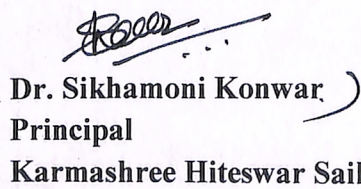 Dr. Sikhamoni Konwar
Principal
Karmashree Hiteswar Sail